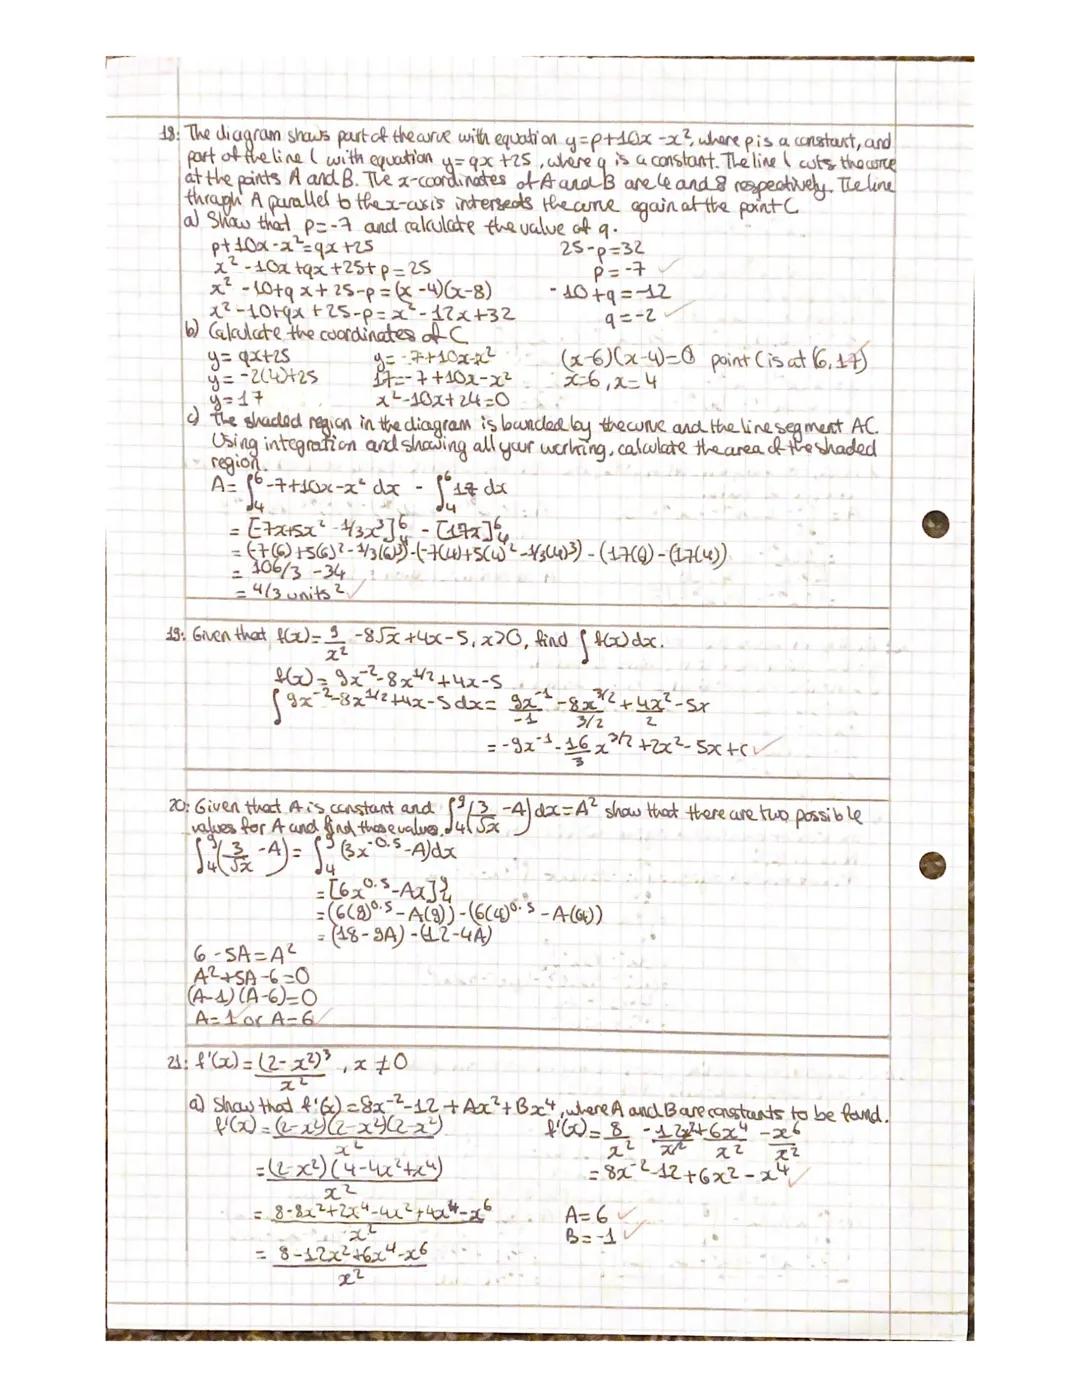 18: The diagram shows part of the curve with equation y=p+10x-x², where p is a constant, and
part of the line l with equation y=qx+25, where q is a constant. The line l cuts the curve
at the points A and B. The x-coordinates of A and B are 4 and 8 respectively. The line
through A parallel to the x-axis intersects the curve again at the point C.
a) Show that p=-7 and calculate the value of q.
p+10x-x²=qx+25
x²-10x+qx+25+p=25
x²-10+qx+25-p=(x-4)(x-8)
x²-10+qx+25-p=x²-12x+32
25-p=32
p=-7 ✓
-10+q=-12
q=-2 ✓
b) Calculate the coordinates of C
y=qx+25
y=-2(4)+25
y=17
y=-7+10x-x²
17=-7+10x-x²
x²-10x+24=0
(x-6)(x-4)=0 point C is at (6,17)
x=6, x=4
c) The shaded region in the diagram is bounded by the curve and the line segment AC.
Using integration and showing all your working, calculate the area of the shaded
region.
A= ∫₄⁶ -7+10x-x² dx - ∫₄⁶ 17 dx
= [-7x+5x²-1/3x³]⁶₄ - [17x]⁶₄
= (-7(6)+5(6)²-1/3(6)³)-(-7(4)+5(4)²-1/3(4)³) - (17(6)-(17(4))
= 106/3 -34
= 4/3 units² ✓
19: Given that f(x)= 9/x² -8√x+4x-5, x>0, find ∫ f(x)dx.
f(x)=9x⁻²-8x^1/2+4x-5
∫9x⁻²-8x^1/2+4x-5dx= 9x⁻¹/-1 - 8x^3/2/3/2 + 4x²/2 -5x
= -9x⁻¹ - 16/3 x^3/2 +2x²-5x+c ✓
20: Given that A is constant and ∫₄⁹(3/√x -A)dx=A² show that there are two possible
values for A and find those values.
∫₄⁹(3/√x -A)= ∫₄⁹(3x^-0.5-A)dx
=[6x^0.5-Ax]⁹₄
=(6(9)^0.5-A(9))-(6(4)^0.5-A(4))
=(18-9A)-(12-4A)
6-5A=A²
A²+5A-6=0
(A-1)(A-6)=0
A=1 or A=6 ✓
21: f'(x)=(2-x²)³/x², x≠0
a) Show that f'(x)=8x⁻²-12+Ax²+Bx⁴, where A and B are constants to be found.
f'(x)=(2-x²)(2-x²)(2-x²)/x²
=(2-x²)(4-4x²+x⁴)/x²
= 8-8x²+2x⁴-4x²+4x⁴-x⁶/x²
= 8-12x²+6x⁴-x⁶/x²
f'(x)= 8/x² - 12x²/x² + 6x⁴/x² - x⁶/x²
= 8x⁻²-12+6x²-x⁴ ✓
A=6 ✓
B=-1 ✓